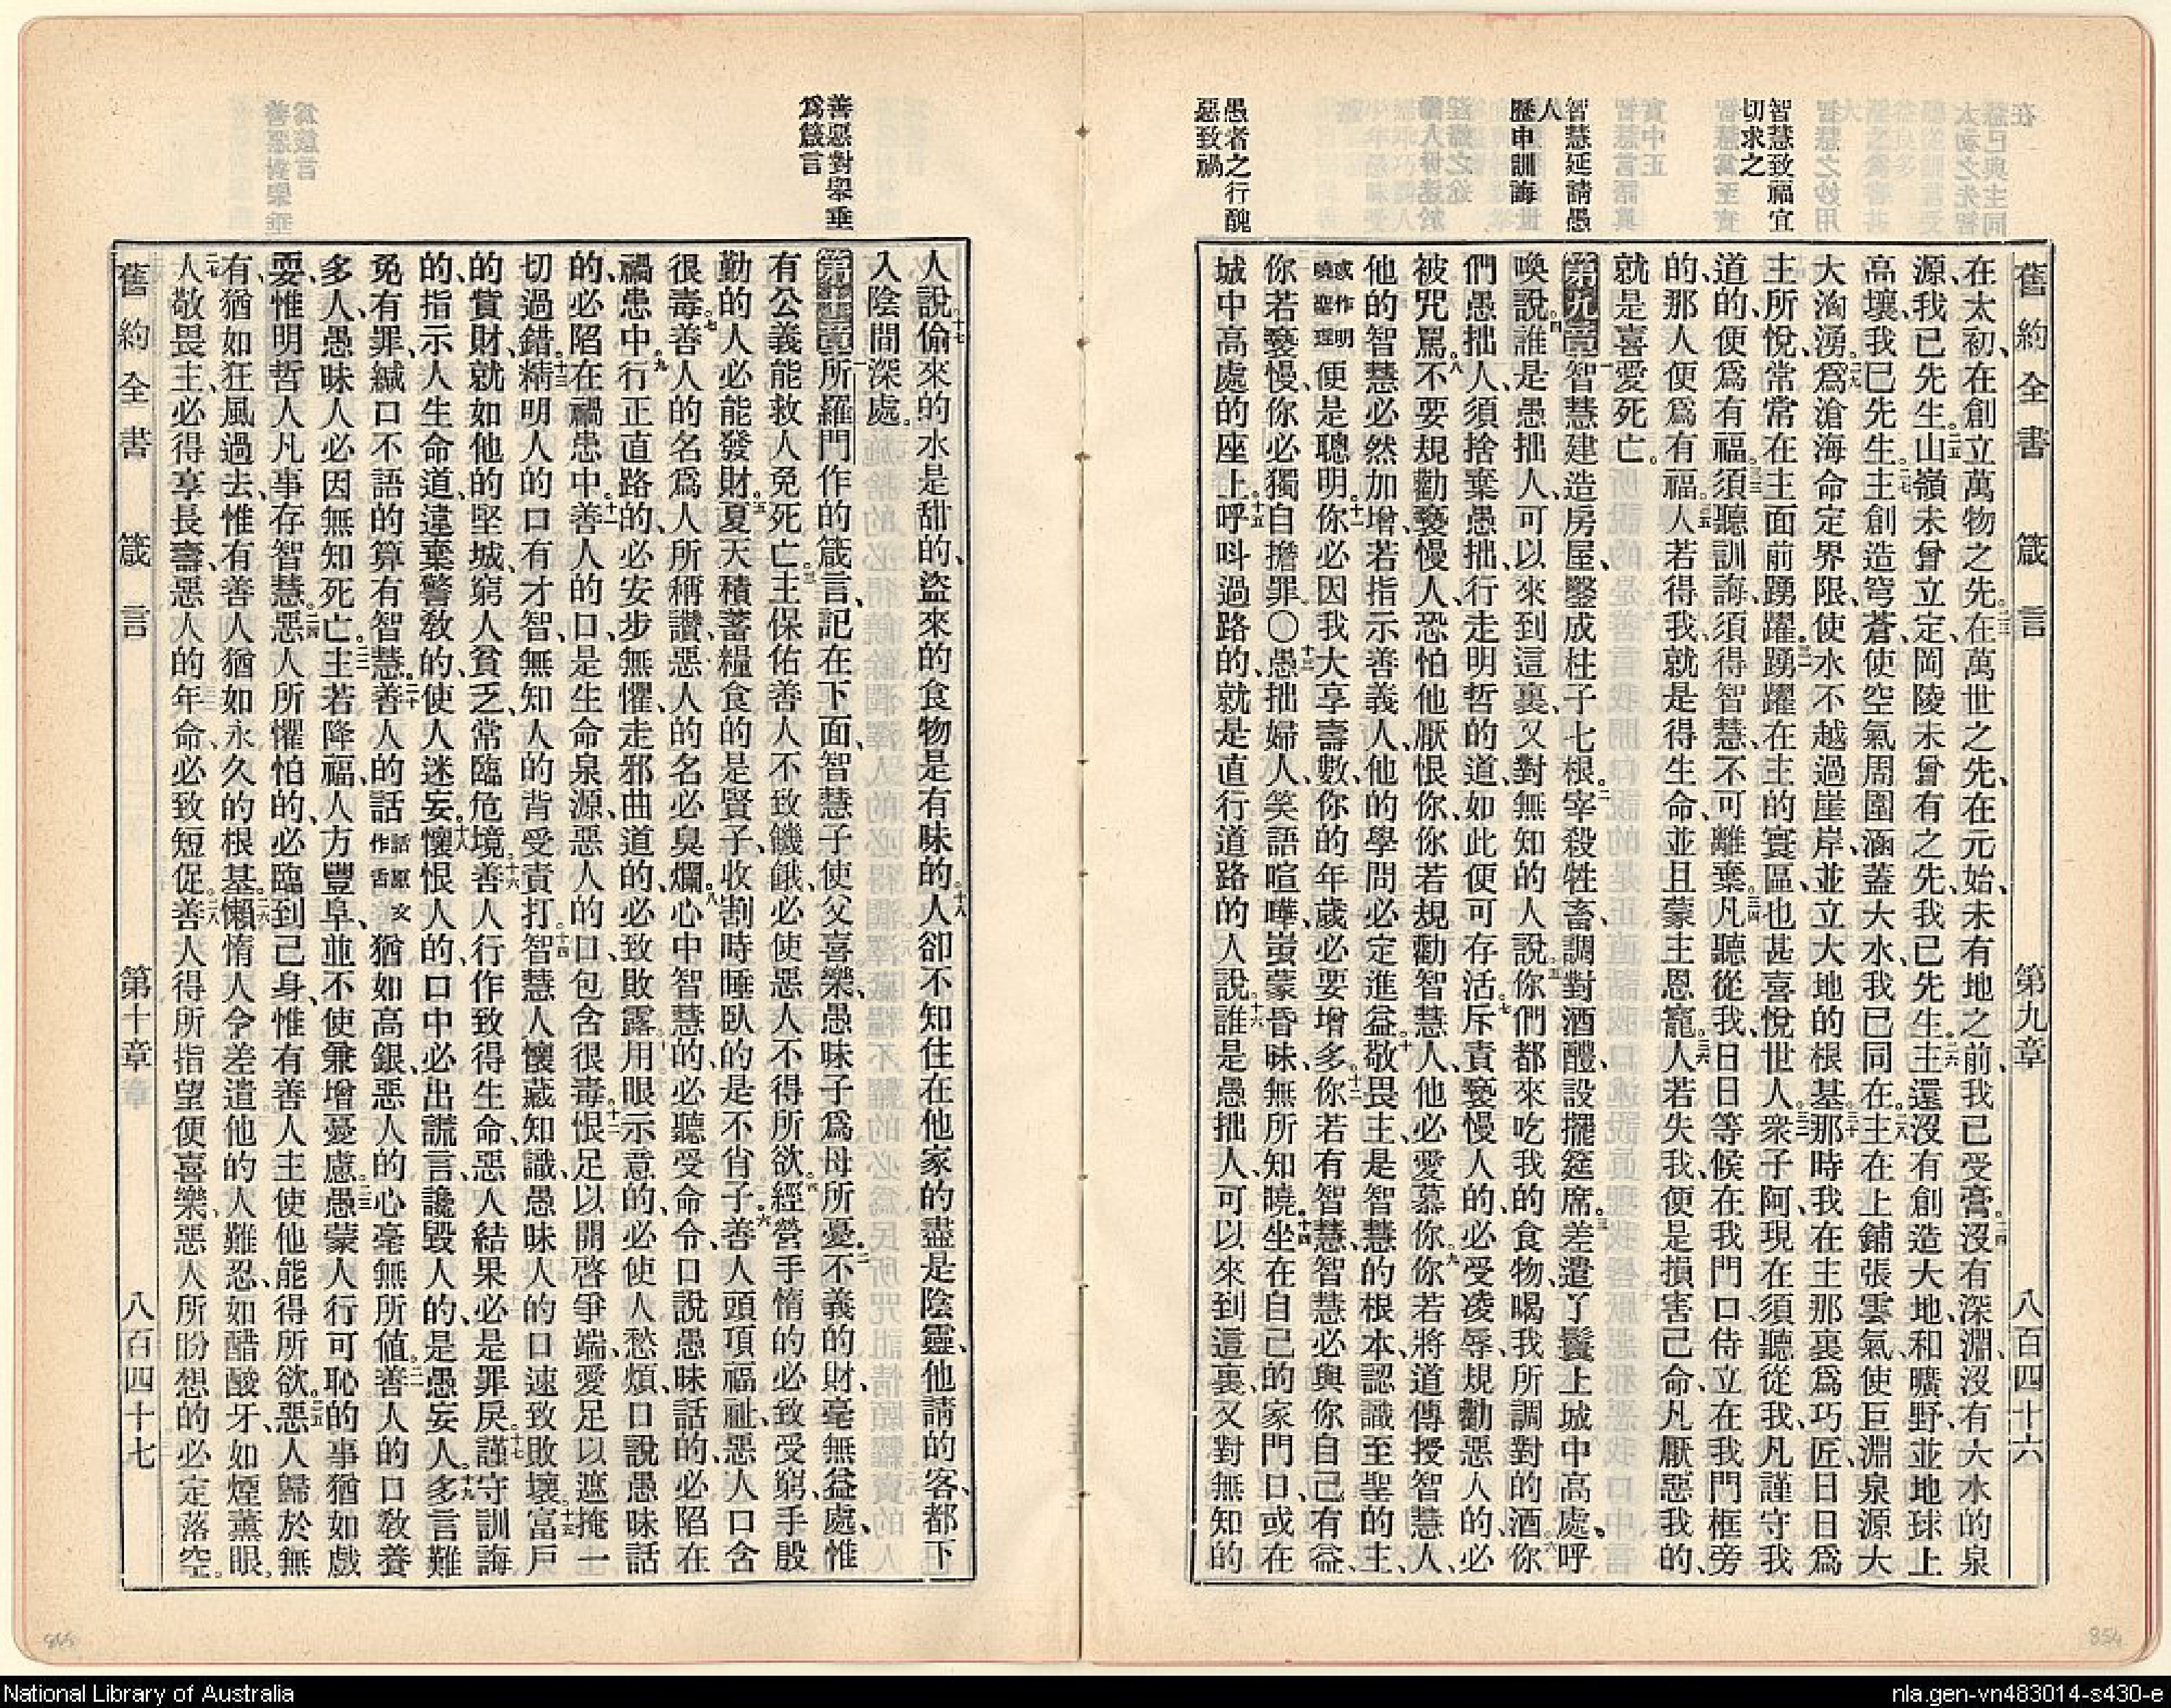 舊約全書 箴言 第九章 八百四十六
智慧致福宜
切求之
智慧延請愚
人
歷申訓誨
愚者之行醜
惡致禍
在太初、在創立萬物之先。二三在萬世之先、在元始、未有地之前、我已受膏。二四沒有深淵、沒有大水的泉
源、我已先生。二五山嶺未曾立定、岡陵未曾有之先、我已先生。二六主還沒有創造大地、和曠野、並地球上
高壤、我已先生。二七主創造穹蒼、使空氣周圍涵蓋大水、我已同在。二八主在上鋪張雲氣、使巨淵泉源大
大洶湧。二九爲滄海命定界限、使水不越過崖岸、並立大地的根基。三十那時我在主那裏爲巧匠、日日爲
主所悅、常常在主面前踴躍。三一踴躍在主的寰區、也甚喜悅世人。三二衆子阿、現在須聽從我、凡謹守我
道的、便爲有福。三三須聽訓誨、須得智慧、不可離棄。三四凡聽從我、日日等候在我門口、侍立在我門框旁
的、那人便爲有福。三五人若得我、就是得生命、並且蒙主恩寵。三六人若失我、便是損害己命、凡厭惡我的、
就是喜愛死亡。
第九章 一智慧建造房屋、鑿成柱子七根。二宰殺牲畜、調對酒醴、設擺筵席。三差遣丫鬟、上城中高處、呼
喚說、四誰是愚拙人、可以來到這裏、又對無知的人說、五你們都來吃我的食物、喝我所調對的酒、六你
們愚拙人、須捨棄愚拙、行走明哲的道、如此便可存活。七斥責褻慢人的、必受凌辱、規勸惡人的、必
被咒罵。八不要規勸褻慢人、恐怕他厭恨你、你若規勸智慧人、他必愛慕你。九你若將道傳授智慧人、
他的智慧必然加增、若指示善義人、他的學問必定進益。十敬畏主、是智慧的根本、認識至聖的主、
或作明曉聖理便是聰明。十一你必因我大享壽數、你的年歲必要增多。十二你若有智慧、智慧必與你自己有益、
你若褻慢、你必獨自擔罪〇十三愚拙婦人、笑語喧嘩、蚩蒙昏昧、無所知曉。十四坐在自己的家門口、或在
城中高處的座上。十五呼呌過路的、就是直行道路的人說、十六誰是愚拙人、可以來到這裏、又對無知的
善惡對舉垂
爲箴言
人說、十七偷來的水是甜的、盜來的食物是有味的。十八人卻不知住在他家的盡是陰靈、他請的客、都下
入陰間深處。
第十章 一所羅門作的箴言、記在下面、智慧子使父喜樂、愚昧子爲母所憂。二不義的財、毫無益處、惟
有公義能救人免死亡。三主保佑善人不致饑餓、必使惡人不得所欲。四經營手惰的必致受窮、手殷
勤的人必能發財。五夏天積蓄糧食的是賢子、收割時睡臥的是不肖子。六善人頭頂福祉、惡人口含
很毒。七善人的名爲人所稱讚、惡人的名必臭爛。八心中智慧的、必聽受命令、口說愚昧話的、必陷在
禍患中。九行正直路的、必安步無懼、走邪曲道的、必致敗露。十用眼示意的、必使人愁煩、口說愚昧話
的、必陷在禍患中。十一善人的口、是生命泉源、惡人的口包含很毒。十二恨足以開啓爭端、愛足以遮掩一
切過錯。十三精明人的口有才智、無知人的背受責打。十四智慧人懷藏知識、愚昧人的口速致敗壞。十五富戶
的貲財、就如他的堅城、窮人貧乏、常臨危境。十六善人行作致得生命、惡人結果必是罪戾。十七謹守訓誨
的、指示人生命道、違棄警教的、使人迷妄。十八懷恨人的口中必出謊言、讒毀人的、是愚妄人。十九多言難
免有罪、緘口不語的算有智慧。二十善人的話話原文作舌猶如高銀、惡人的心毫無所値。二一善人的口教養
多人、愚昧人必因無知死亡。二二主若降福、人方豐阜、並不使兼增憂慮。二三愚蒙人行可恥的事猶如戲
耍、惟明哲人凡事存智慧。二四惡人所懼怕的、必臨到己身、惟有善人主使他能得所欲。二五惡人歸於無
有、猶如狂風過去、惟有善人猶如永久的根基。二六懶惰人令差遣他的人難忍、如醋酸牙、如煙薰眼。
二七人敬畏主、必得享長壽、惡人的年命必致短促。二八善人得所指望便喜樂、惡人所盼想的必定落空。
舊約全書 箴言 第十章 八百四十七
865
854
National Library of Australia
nla.gen-vn483014-s430-e